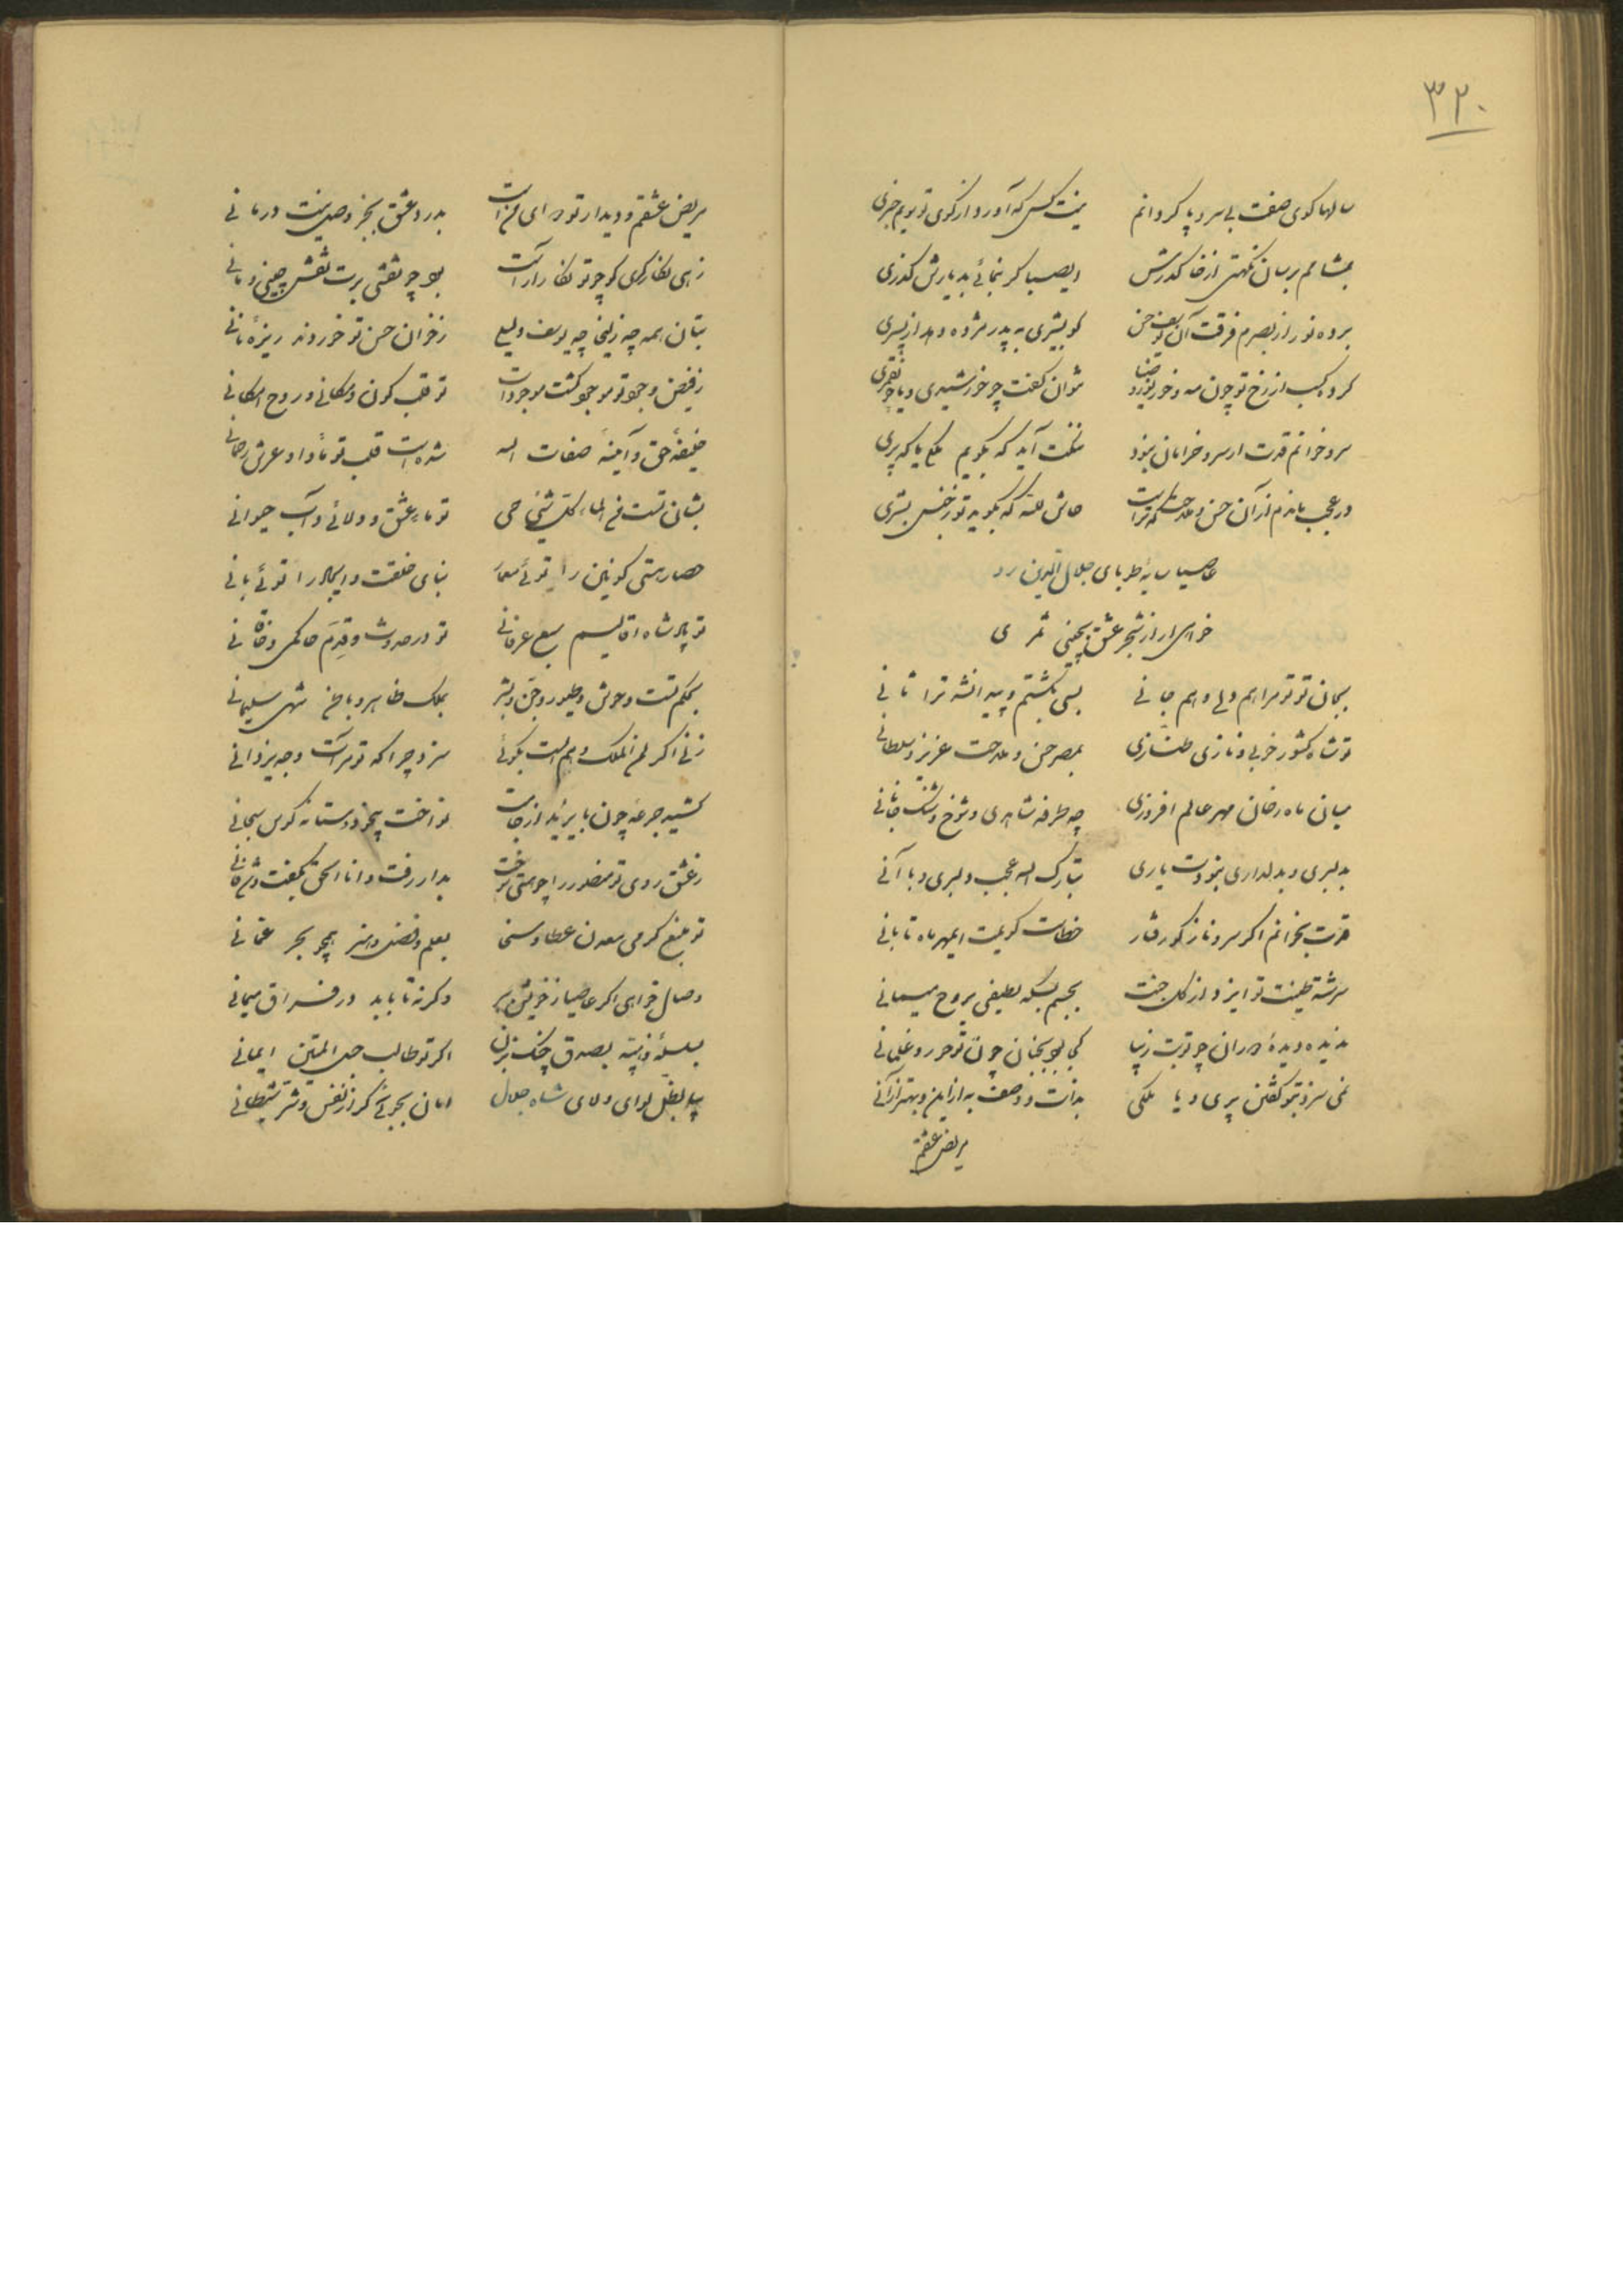 ۳۲۰
سالها کوی صفت بی سر و پا کردانم نیست کس که آورد از کوی تو بویم خبری
بمشامم برسان نکهتی از خاک درش ایصبا کر بنمائی بدیارش کذری
برده نور از بصرم فرقت آن یوسف حسن کو بشیری به پدر مژده دهد از پسری
کرده کسب از رخ تو چون مه و خور نور و ضیا نتوان کفت چو خورشیدی و یا چو قمری
سرو خوانم قدت ار سرو خرامان نبود ننکت آید که بکویم ملکی یا که پری
در عجب ماندم از آن حسن و ملاحت که تراست حاش لله که بکوید تو ز جنس بشری
عاصیا سایه طوبای جلال الدین رو
خواهی ار از شجر عشق بچینی ثمری
بجان تو تو مرا هم دل و هم جانی بسی بکشتم و پیدا نشد ترا ثانی
تو شاه کشور خوبی و نازی و طنازی بمصر حسن و ملاحت عزیز و سلطانی
میان ماه رخان مهر عالم افروزی چه طرفه شاهدی و شوخ و شنک فتانی
بدلبری و بدلداری نبودت یاری تبارک الله عجب دلبری و با آنی
قدت بخوانم اکر سرو ناز کو رفتار خطاست کویمت ایمهر ماه تابانی
سرشته طینت تو ایزد از کل جنت بجسم بسکه لطیفی بروح میمانی
ندیده دیده دوران چو تو بت زیبا کجا بود بجنان چون تو حور و غلمانی
نمی سزد بتو کفتن پری و یا ملکی بذات و وصف به از این و بهتر از آنی
مریض عشقم
مریض عشقم و دیدار تو دوای من است بدرد عشق بجز وصل نیست درمانی
زهی نکارکری کو چو تو نکار آراست بود چو نقشی برت نقش چینی و مانی
بتان همه چه زلیخا چه یوسف و لیلی ز خوان حسن تو خوردند ریزه نانی
ز فیض وجود تو موجود کشت موجودات تو قلب کون و مکانی و روح امکانی
خلیفه حق و آئینه صفات اله شده است قلب تو مأوا و عرش رحمانی
بشان تست من الماء کل شیئی حی تو ماء عشق و ولائی و آب حیوانی
حصار هستی کونین را توئی معمار بنای خلقت و ایجاد را توئی بانی
تو پادشاه اقالیم سبع عرفانی تو در حدوث و قدم حاکمی و خاقانی
بحکم تست وحوش و طیور و جن و بشر بملک ظاهر و باطن شهی سلیمانی
زنی اکر لمن الملک و هم الست بکوئی سزد چرا که تو مرآت وجه یزدانی
کشید جرعه چون بایزید از جامت نواخت بیخود و مستانه کوس سبحانی
ز عشق روی تو منصور را چو مستی بدار رفت و انا الحق بکفت
تو منبع کرمی معدن عطا و سخا بعلم و فضل و هنر همچو بحر عمانی
وصال خواهی اکر عاصیا ز خویش ببر وکرنه تا بابد در فراق میمانی
بصدق چنک بزن اکر تو طالب حبل المتین ایمانی
بیا بظل لوای ولای شاه جلال امان بجوئی کر از نفس و شر شیطانی